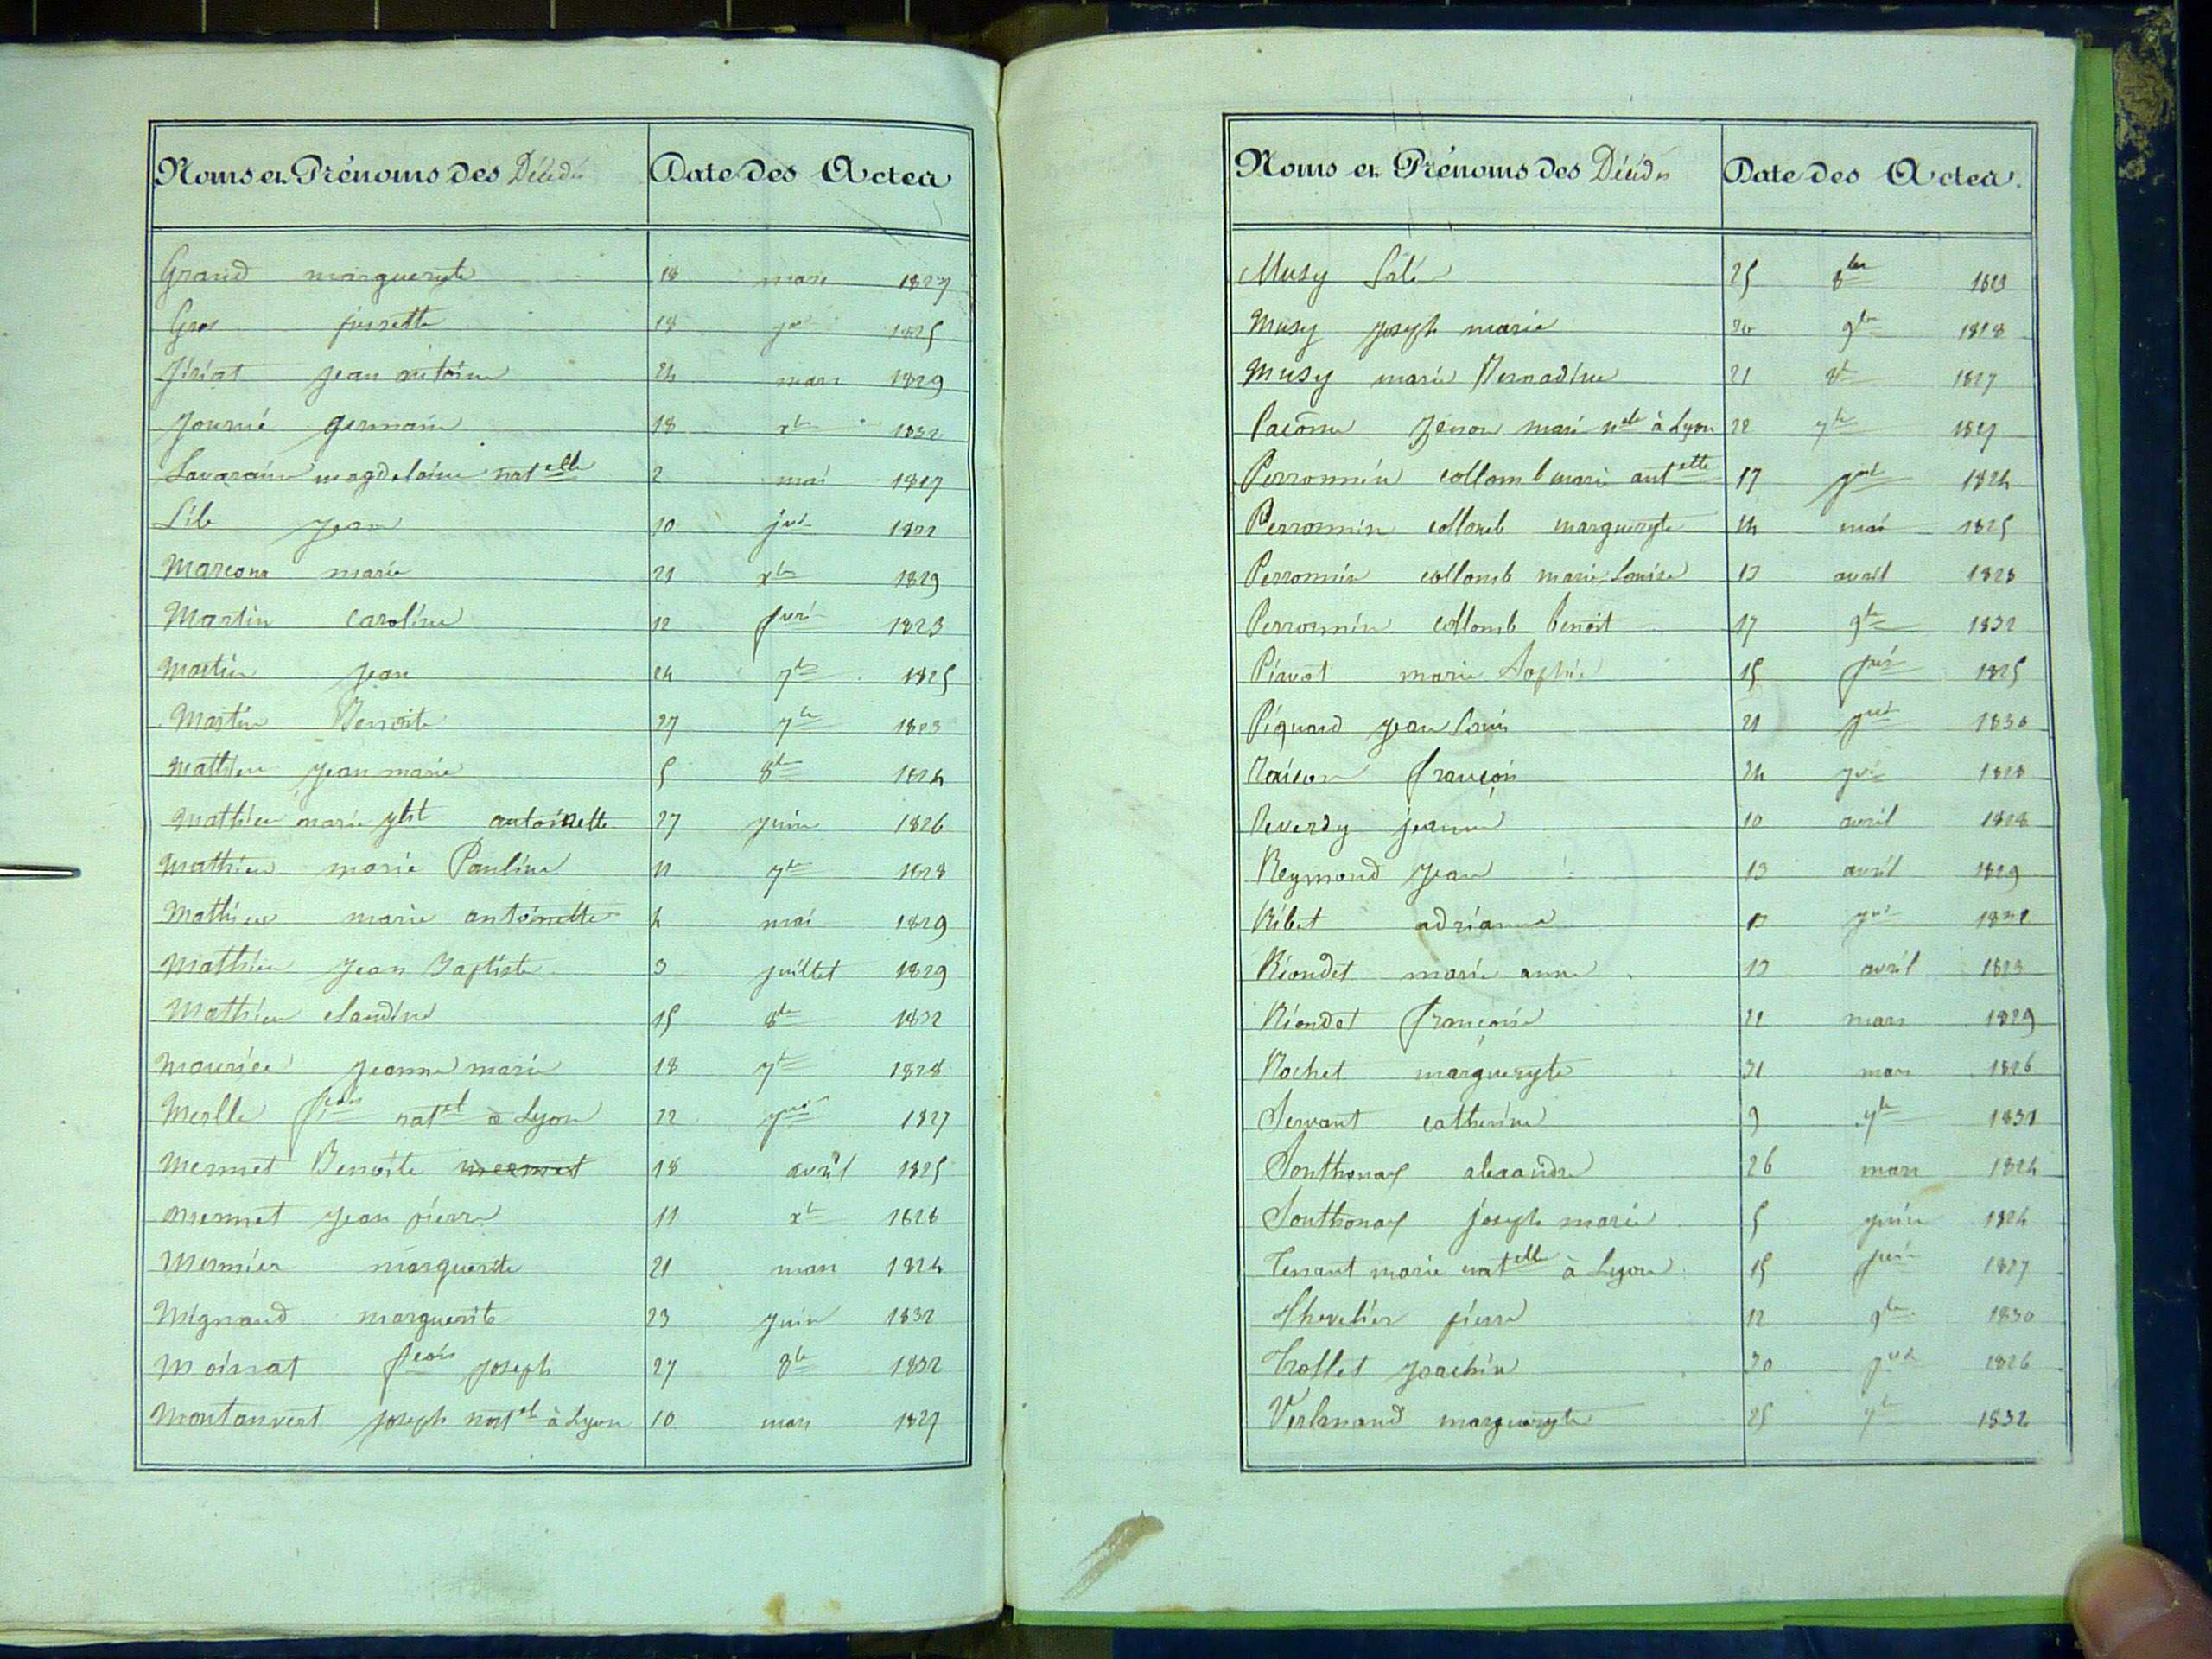 Noms et Prénoms des Décédés Date des Actes
Grand margueryte 18 mars 1827
Gros pierrette 18 1825
Jiriat jean antoine 24 mars 1829
Journé germain 18 xbre 1832
magdelaine natelle 2 mai 1827
Lib jean 10 1822
marie 21 xbre 1829
Martin caroline 12 fvri 1823
Martin jean 24 7bre 1825
Martin Benoite 27 7bre 1823
Mathieu jean marie 5 8bre 1824
Mathieu marie antoinette 27 juin 1826
Mathieu marie Pauline 11 7bre 1828
Mathieu marie antoinette 4 mai 1829
Mathieu jean Baptiste 3 juillet 1829
Mathieu claudine 15 8bre 1832
Maurice jeanne marie 18 7bre 1828
Merlle fcois natel à Lyon 22 1827
Mermet Benoite mermet 18 avril 1825
Mermet jean pierre 11 xbre 1828
Mermier marguerite 21 mars 1824
Mignaud marguerite 23 juin 1832
Moirat fcois joseph 27 8bre 1832
Montanvert joseph natel à Lyon 10 mars 1827
Noms et Prénoms des Décédés Date des Actes
Musy 25 8bre 1823
Musy joseph marie 30 9bre 1828
Musy marie Bernadine 21 8bre 1827
marie à Lyon 22 7bre 1827
Perronnin collomb marie antette 17 1824
Perronnin collomb margueryte 24 mai 1825
Perronnin collomb marie Louise 13 avril 1828
Perronnin collomb benoit 17 9bre 1832
marie Sophie 15 1825
Piquard jean Louis 21 1830
françois 24 1828
Reverdy jeanne 10 avril 1828
Reymond jean 13 avril 1829
Ribet adrianne 1832
Riondet marie anne 13 avril 1823
Riondet françoise 22 mars 1829
Rochet margueryte 31 mars 1826
Servant catherine 9 1831
Southonax alexandre 26 mars 1824
Southonax joseph marie 5 juin 1824
Tenant marie natelle à Lyon 15 1827
Thevelier pierre 12 9bre 1830
Trollet joachin 30 1826
margueryte 25 1832